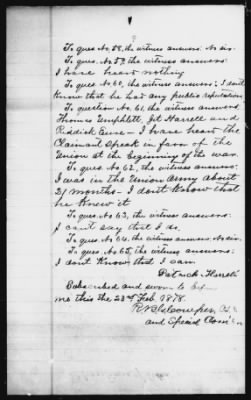 To ques No. 58, the witness answers: No sir.
To ques. No. 59, the witness answers:
I have heard nothing
To ques No. 60, the witness answers; I don't
Know that he has any public reputation
To question No. 61, the witness answers
Thomas Umphlett, Jet Harrell and
Riddick Eure - I have heard the
Claimant speak in favor of the
Union at the beginning of the war.
To ques No. 62, the witness answers:
I was in the Union Army about
21 months - I don't Know that
he Knew it
To ques No. 63, the witness answers:
I can't say that I do.
To ques No. 64, the witness answers: No sir.
To ques No. 65, the witness answers:
I don't Know that I can.
Patrick Harrell
Subscribed and sworn to before
me this the 23rd Feb. 1878.
and Special Com